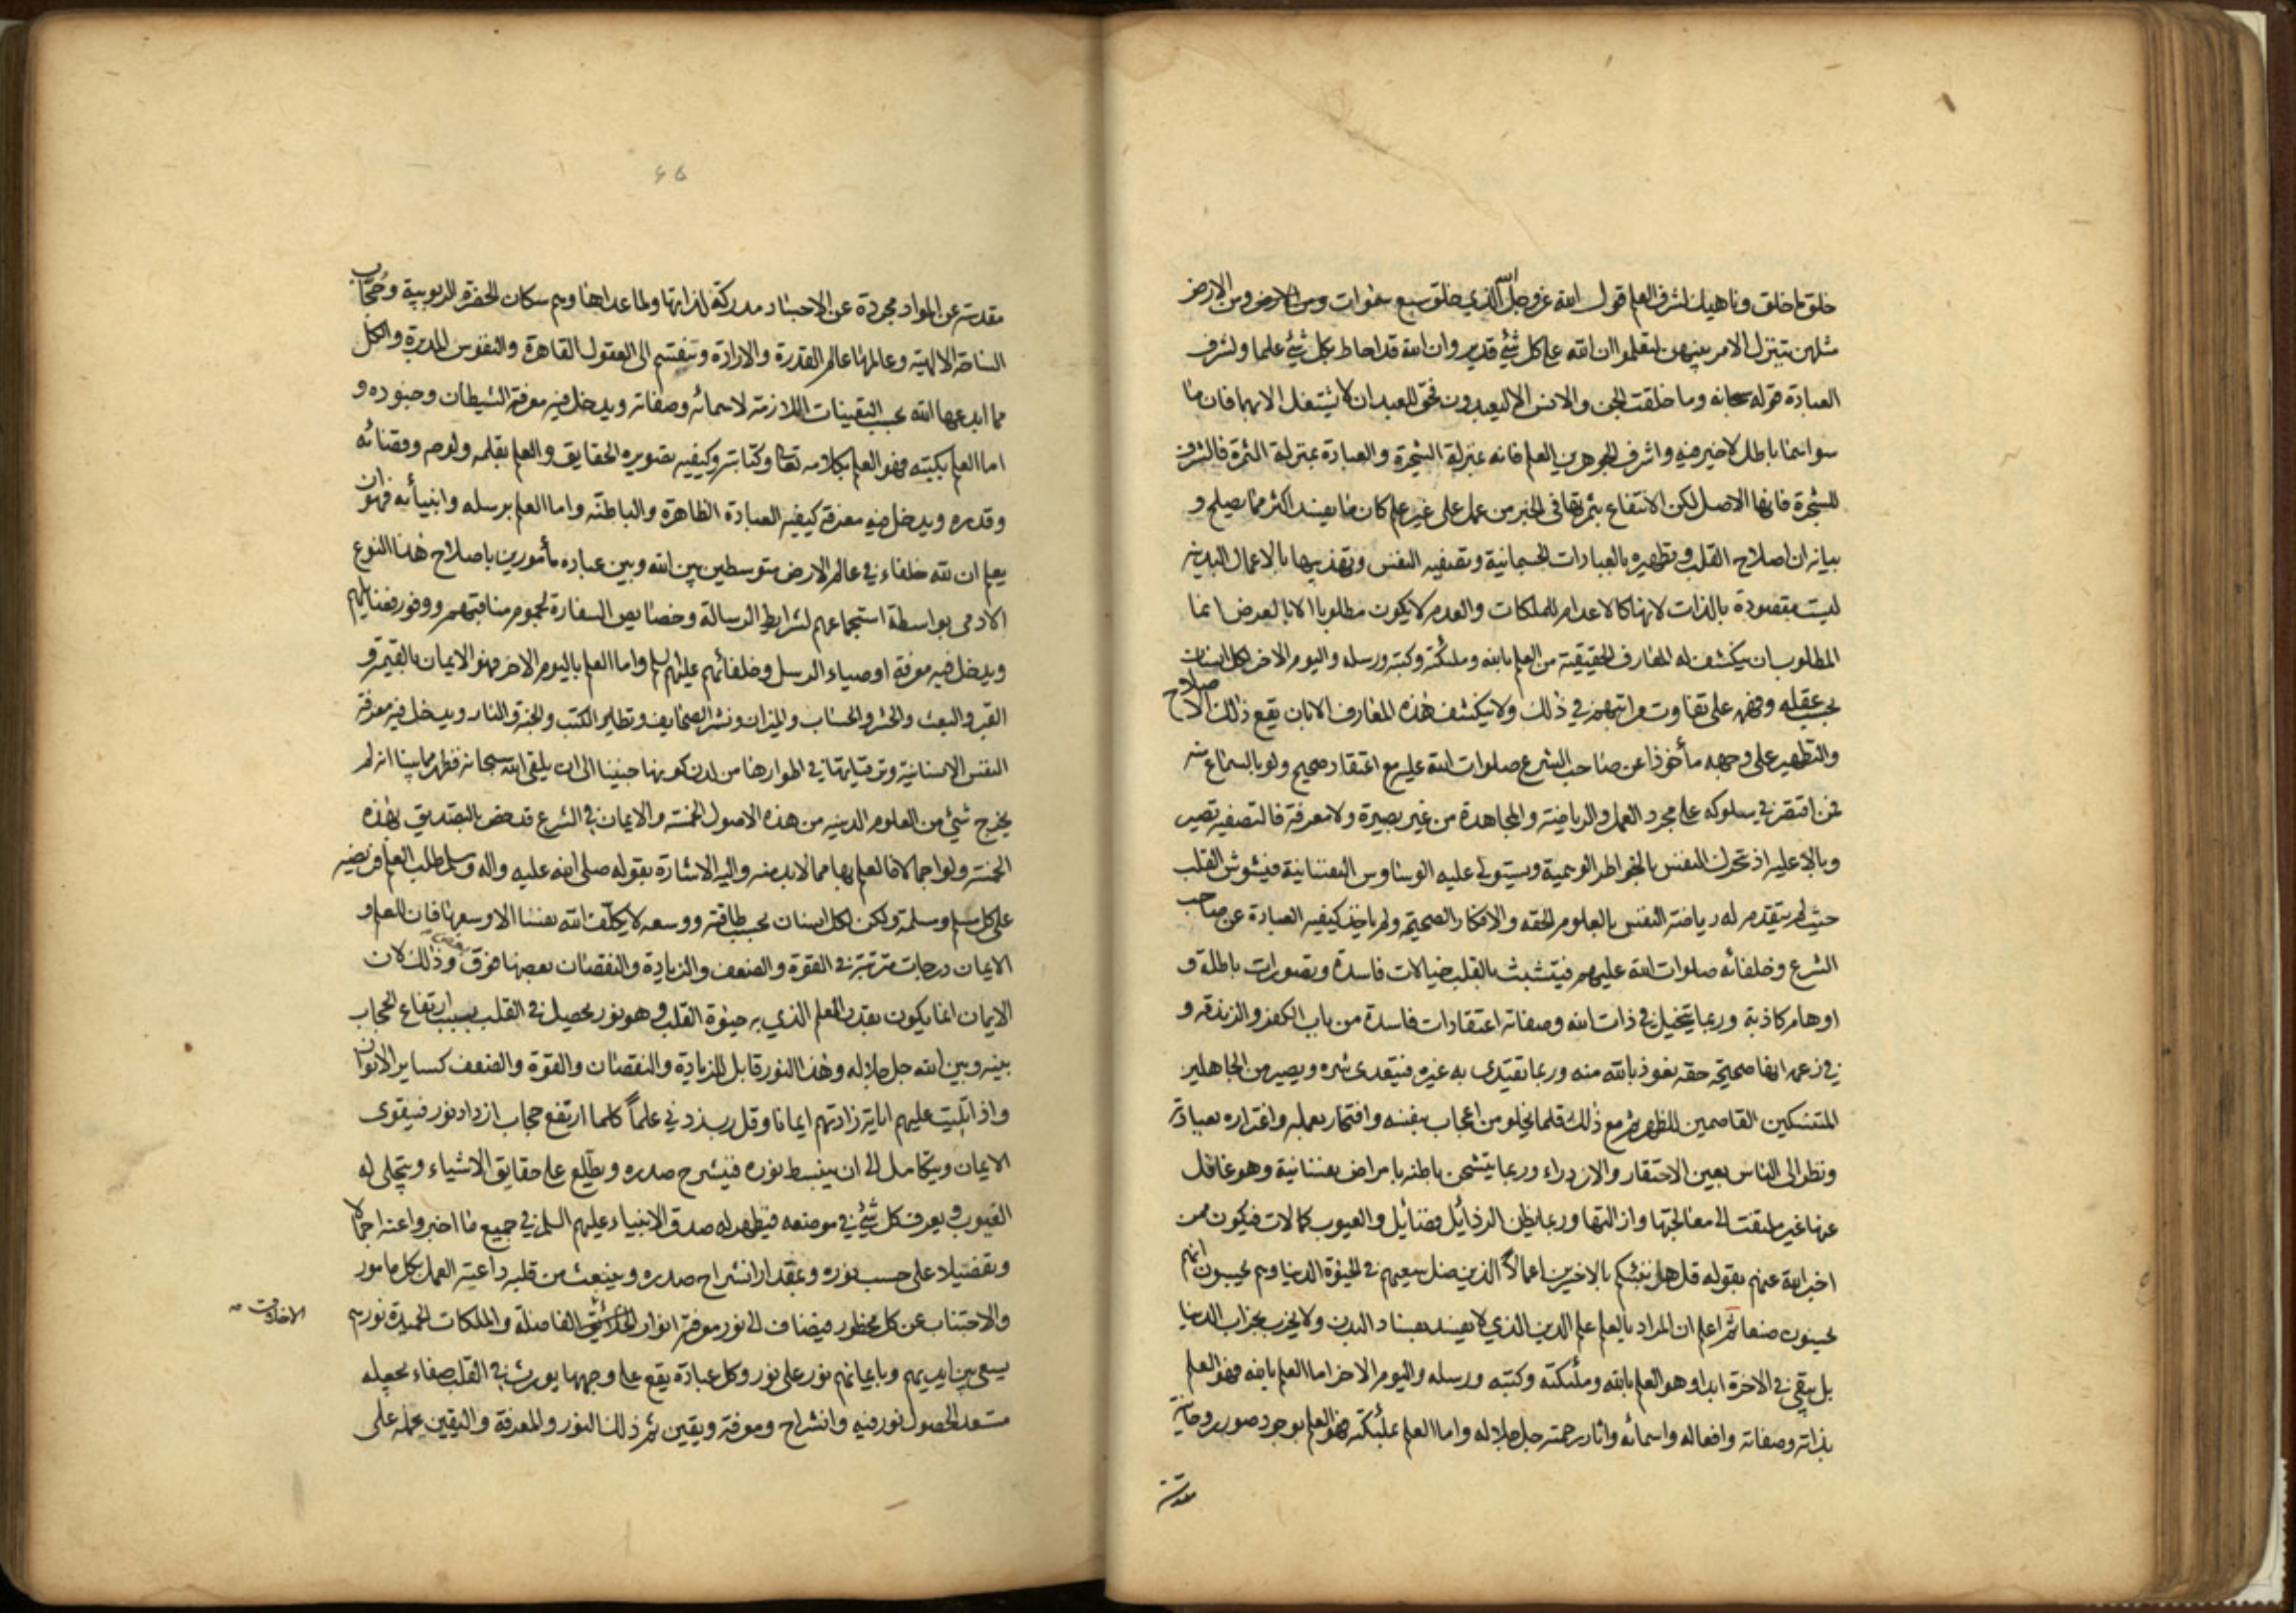 خلق ما خلق وناهيك لشرف العلم قول الله عز وجل الله الذي خلق سبع سموات ومن الارض ومن الارض
مثلهن يتنزل الامر بينهن لتعلموا ان الله على كل شئ قدير وان الله قد احاط بكل شئ علما ولشرف
العبادة قوله سبحانه وما خلقت الجن والانس الا ليعبدون فحق للعبد ان لا يشتغل الا بهما فان ما
سواهما باطل لا خير فيه واشرف الجوهرين العلم فانه بمنزلة الشجرة والعبادة بمنزلة الثمرة فالشرف
للشجرة فانها الاصل لكن الانتفاع بثمرتها في الخبر من عمل على غير علم كان ما يفسد اكثر مما يصلح و
بيانه ان اصلاح القلب وتطهيره بالعبادات الجسمانية وتصفيه النفس وتهذيبها بالاعمال البدنيه
ليست مقصودة بالذات لانها كالاعدام للملكات والعدم لا يكون مطلوبا الا بالعرض انما
المطلوب ان ينكشف له المعارف الحقيقية من العلم بالله وملئكته وكتبه ورسله واليوم الاخر لكل انسان
بحسب عقله وفهمه على تفاوت مراتبهم في ذلك ولا ينكشف هذه المعارف الا بان يقع ذلك الاصلاح
والتطهير على وجهه مأخوذا عن صاحب الشرع صلوات الله عليه مع اعتقاد صحيح ولو بالسماع منه
فمن اقتصر في سلوكه على مجرد العمل والرياضة والمجاهدة من غير بصيرة ولا معرفة فالتصفيه تصير
وبالا عليه اذ تحرك النفس بالخواطر الوهمية ويستولي عليه الوساوس النفسانية فيشوش القلب
حيث لم يتقدم له رياضة النفس بالعلوم الحقه والافكار الصحيحة ولم ياخذ كيفيه العبادة عن صاحب
الشرع وخلفائه صلوات الله عليهم فيتشبث بالقلب خيالات فاسدة وتصورات باطلة و
اوهام كاذبة وربما يتخيل في ذات الله وصفاته اعتقادات فاسدة من باب الكفر والزندقه و
في زعمه انها صحيحة حقه نعوذ بالله منه وربما يقتدى به غيره فيتعدى شره ويصير من الجاهلين
المتنسكين القاصمين للظهر ثم مع ذلك قلما يخلو من اعجاب بنفسه وافتخار بعمله واغتراره بعبادته
ونظر الى الناس بعين الاحتقار والازدراء وربما يتشحن باطنه بامراض نفسانية وهو غافل
عنها غير ملتفت الى معالجتها وازالتها وربما يظن الرذائل فضائل والعيوب كمالات فيكون ممن
اخبر الله عنهم بقوله قل هل ننبئكم بالاخسرين اعمالا الذين ضل سعيهم في الحيوة الدنيا وهم يحسبون انهم
يحسنون صنعا ثم اعلم ان المراد بالعلم علم الدين الذي لا يفسد بفساد البدن ولا يخرب بخراب الدنيا
بل يبقى في الاخرة ابدا وهو العلم بالله وملئكته وكتبه ورسله واليوم الاخر اما العلم بالله فهو العلم
بذاته وصفاته وافعاله واسمائه واثار رحمته جل جلاله واما العلم بملئكته فهو العلم بوجود صور روحانية
مقدسة
مقدسة عن المواد مجردة عن الاجساد مدركة لذاتها ولما عداها وهم سكان الحضرة الربوبية وحجاب
الساحة الالهية وعالمها عالم القدرة والارادة وتنقسم الى العقول القاهرة والنفوس المدبرة والكل
مما ابدعها الله بحسب التعينات اللازمة لاسمائه وصفاته ويدخل فيه معرفة الشيطان وجنوده و
اما العلم بكتبه فهو العلم بكلامه تعالى وكتابته وكيفيه تصويره الحقايق والعلم بقلمه ولوحه وقضائه
وقدره ويدخل فيه معرفة كيفيه العبادة الظاهرة والباطنه واما العلم برسله وانبيائه فهو ان
يعلم ان لله خلفاء في عالم الارض متوسطين بين الله وبين عباده مأمورين باصلاح هذا النوع
الادمى بواسطة استجماعهم لشرايط الرسالة وخصايص السفارة لجموم مناقبهم ووفور فضايلهم
ويدخل فيه معرفة اوصياء الرسل وخلفائهم عليهم السلم واما العلم باليوم الاخر فهو الايمان بالقيمة و
القبر والبعث والحشر والحساب والميزان ونشر الصحايف وتطاير الكتب والجنة والنار ويدخل فيه معرفة
النفس الانسانية وترقياتها في اطوارها من لدن كونها جنينا الى ان يلقى الله سبحانه فظهر مما بينا انه لم
يخرج شئ من العلوم الدينيه من هذه الاصول الخمسة والايمان في الشرع قد خص بالتصديق بهذه
الخمسة ولو اجمالا فالعلم بها مما لابد منه واليه الاشارة بقوله صلى الله عليه واله وسلم طلب العلم فريضه
على كل مسلم ومسلمة ولكن لكل انسان بحسب طاقته ووسعه لا يكلف الله نفسا الا وسعها فان للعلم و
الايمان درجات مترتبة في القوة والضعف والزيادة والنقصان بعضها فوق بعض وذلك لان
الايمان انما يكون بقدر العلم الذي به حيوة القلب وهو نور يحصل في القلب بسبب ارتفاع الحجاب
بينه وبين الله جل جلاله وهذا النور قابل للزيادة والنقصان والقوة والضعف كساير الانوار
واذا تليت عليهم اياته زادتهم ايمانا وقل رب زدني علما كلما ارتفع حجاب ازداد نور فيقوى
الايمان ويتكامل الى ان ينبسط نوره فينشرح صدره ويطلع على حقايق الاشياء ويتجلى له
الغيوب ويعرف كل شئ في موضعه فيظهر له صدق الانبياء عليهم السلم في جميع ما اخبروا عنه اجمالا
وتفصيلا على حسب نوره وبمقدار انشراح صدره وينبعث من قلبه داعية العمل بكل مامور
والاجتناب عن كل محظور فيضاف الى نور معرفته انوار الفاضلة والملكات الحميدة نورهم
الاخلاق
يسعى بين ايديهم وبايمانهم نور على نور وكل عبادة يقع على وجهها يورث في القلب صفاء يجعله
مستعدا لحصول نور فيه وانشراح ومعرفة ويقين ثم ذلك النور والمعرفة واليقين يحمله على